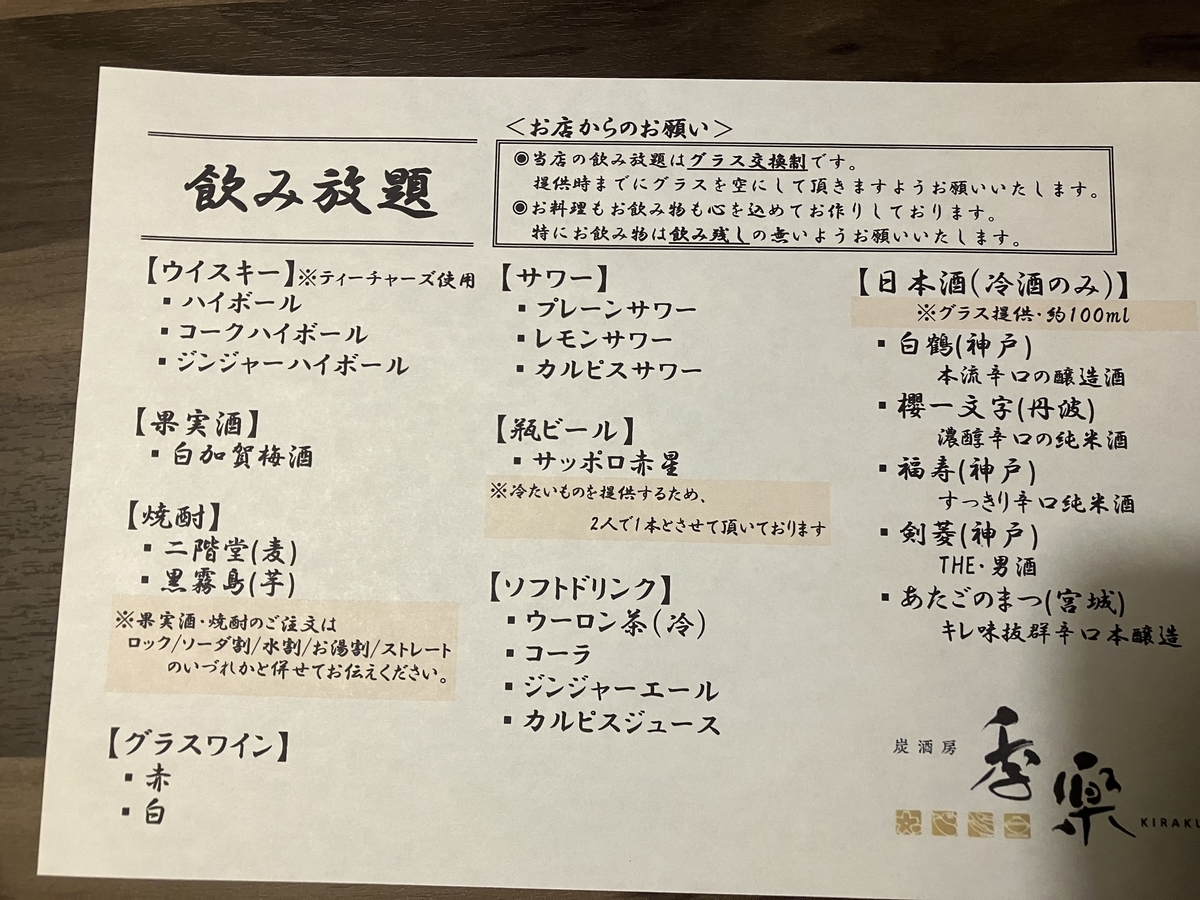 飲み放題
＜お店からのお願い＞
◉当店の飲み放題はグラス交換制です。
提供時までにグラスを空にして頂きますようお願いいたします。
◉お料理もお飲み物も心を込めてお作りしております。
特にお飲み物は飲み残しの無いようお願いいたします。
【ウイスキー】※ティーチャーズ使用
▪ハイボール
▪コークハイボール
▪ジンジャーハイボール
【果実酒】
▪白加賀梅酒
【焼酎】
▪二階堂(麦)
▪黒霧島(芋)
※果実酒・焼酎のご注文は
ロック/ソーダ割/水割/お湯割/ストレート
のいづれかと併せてお伝えください。
【グラスワイン】
▪赤
▪白
【サワー】
▪プレーンサワー
▪レモンサワー
▪カルピスサワー
【瓶ビール】
▪サッポロ赤星
※冷たいものを提供するため、
2人で1本とさせて頂いております
【ソフトドリンク】
▪ウーロン茶(冷)
▪コーラ
▪ジンジャーエール
▪カルピスジュース
【日本酒(冷酒のみ)】
※グラス提供・約100ml
▪白鶴(神戸)
本流辛口の醸造酒
▪櫻一文字(丹波)
濃醇辛口の純米酒
▪福寿(神戸)
すっきり辛口純米酒
▪剣菱(神戸)
THE・男酒
▪あたごのまつ(宮城)
キレ味抜群辛口本醸造
炭酒房
季楽
KIRAKU